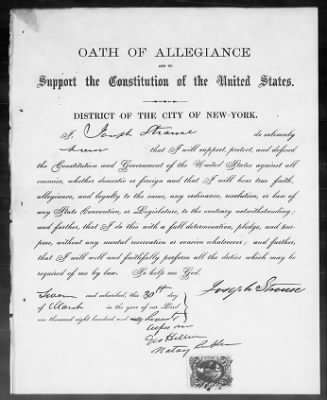 OATH OF ALLEGIANCE
AND TO
Support the Constitution of the United States.
DISTRICT OF THE CITY OF NEW-YORK.
I, Joseph do solemnly
that I will support, protect, and defend
the Constitution and Government of the United States against all
enemies, whether domestic or foreign and that I will bear true faith,
allegiance, and loyalty to the same, any ordinance, resolution, or law of
any State Convention, or Legislature, to the contrary notwithstanding;
and further, that I do this with a full determination, pledge, and pur-
pose, without any mental reservation or evasion whatsoever; and further,
that I will well and faithfully perform all the duties which may be
required of me by law. So help me God.
Joseph
Sworn and subscribed, this 30th day
of March in the year of our Lord
one thousand eight hundred and
before me
Geo
Notary Public